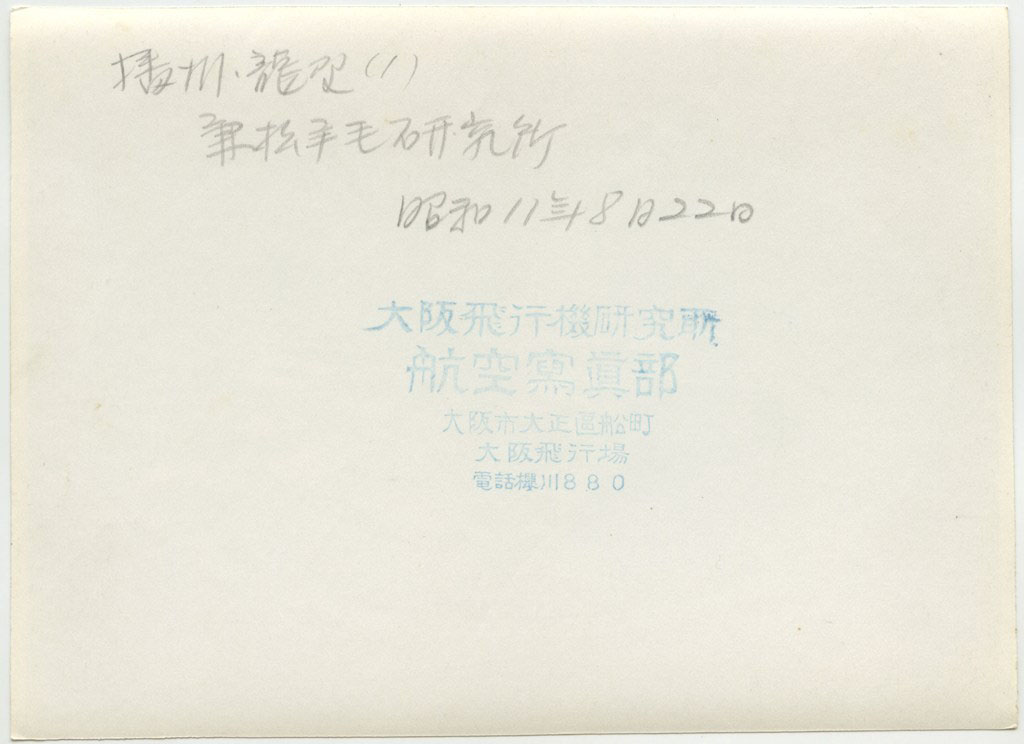 播州・龍野(1)
兼松羊毛研究所
昭和11年8月22日
大阪飛行機研究所
航空寫眞部
大阪市大正區船町
大阪飛行場
電話櫻川880